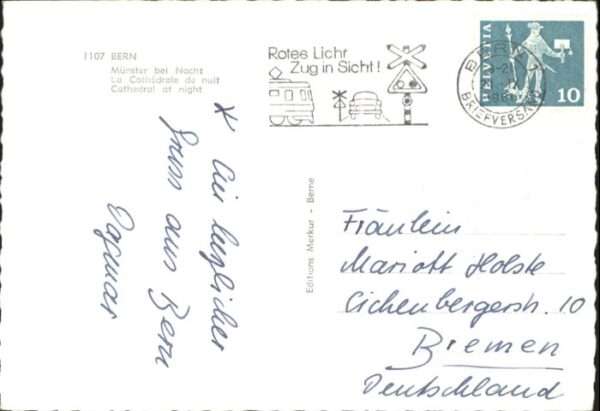 1107 BERN
Münster bei Nacht
La Cathédrale de nuit
Cathedral at night
Rotes Licht
Zug in Sicht!
BERN 1
BRIEFVERSAND
HELVETIA
10
Ein herzlicher
Gruss aus Bern
Dagmar
Editions Merkur - Berne
Fräulein
Mariott Holste
Eichenbergerstr. 10
Bremen
Deutschland